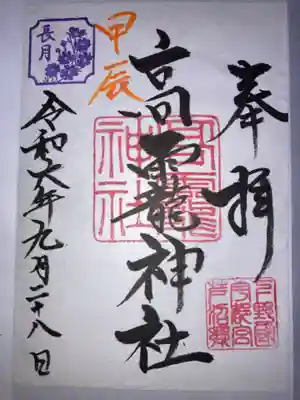 奉拝
下野國
高靇神社
高靇
神社
甲辰
長月
令和六年九月二十八日